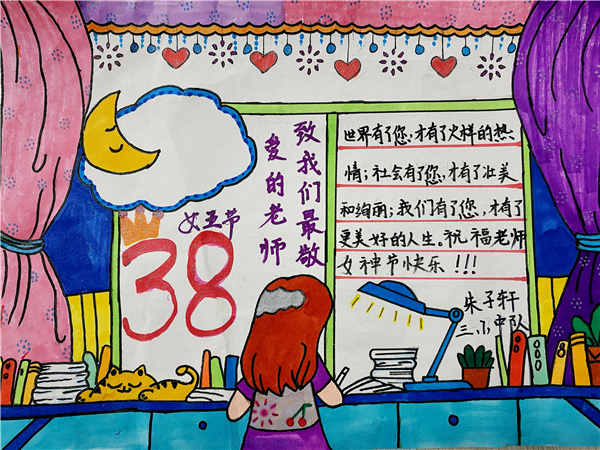 致我们最敬
爱的老师
女王节
38
世界有了您,才有了火样的热
情;社会有了您,才有了壮美
和绚丽;我们有了您,才有了
更美好的人生。祝福老师
女神节快乐!!!
朱子轩
三小中队